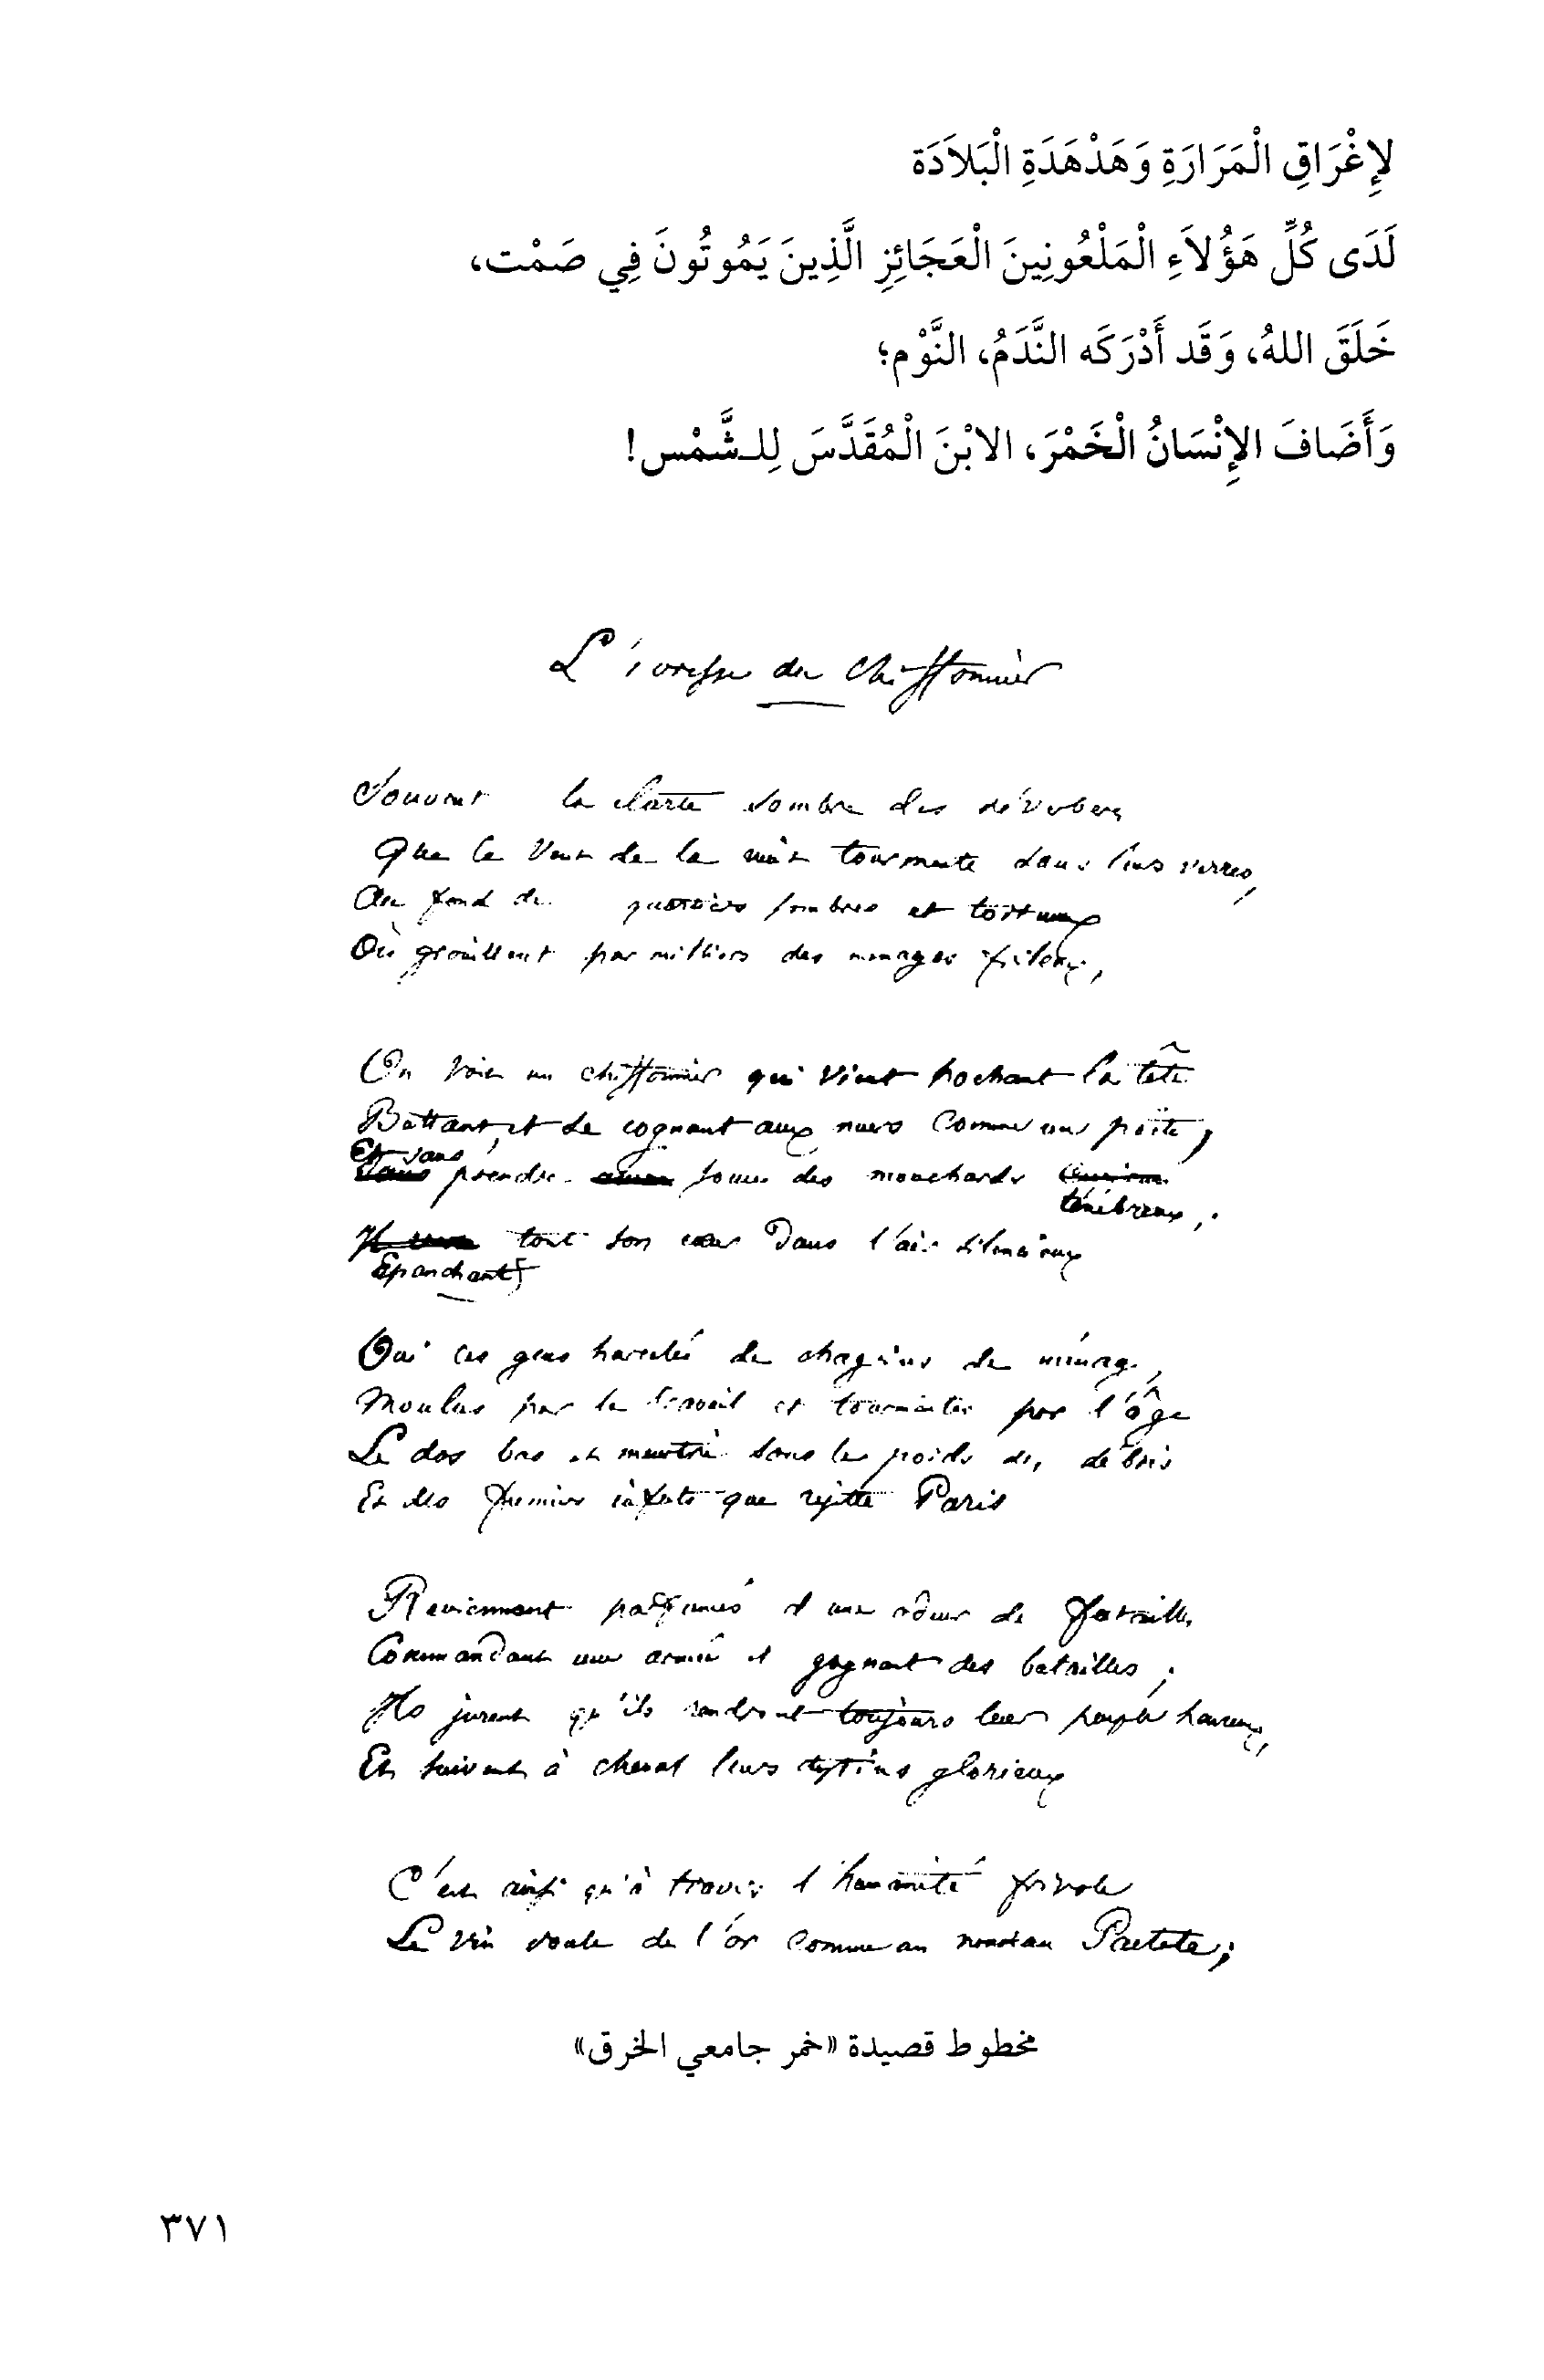 لإِغْرَاقِ الْمَرَارَةِ وَهَدْهَدَةِ الْبَلاَدَة
لَدَى كُلِّ هَؤُلاَءِ الْمَلْعُونِينَ الْعَجَائِزِ الَّذِينَ يَمُوتُونَ فِي صَمْت،
خَلَقَ اللهُ، وَقَد أَدْرَكَه النَّدَمُ، النَّوْم؛
وَأَضَافَ الإِنْسَانُ الْخَمْرَ، الابْنَ الْمُقَدَّسَ لِلشَّمْس!
L'ivresse du Chiffonnier
Souvent la clarté sombre des réverbères
Que le vent de la nuit tourmente dans leurs verres,
Au fond de quartiers sombres et tortueux
Où grouillent par milliers des ménages frileux,
On voit un chiffonnier qui vient hochant la tête
Battant, et se cognant aux murs comme un poète,
Et sans
prendre souci des mouchards
ténébreux,
tout son cœur dans l'air silencieux
Epanchant
Oui ces gens harcelés de chagrins de ménage,
Moulus par le travail et tourmentés par l'âge
Le dos bas et meurtri sous le poids des débris
Et des fumiers infects que rejette Paris
Reviennent parfumés d'une odeur de futailles,
Commandant une armée et gagnant des batailles,
Ils jurent qu'ils rendront toujours leur peuple heureux,
Et suivent à cheval leurs destins glorieux
C'est ainsi qu'à travers l'humanité frivole
Le vin roule de l'or comme un nouveau Pactole;
مخطوط قصيدة «خمر جامعي الخرق»
٣٧١